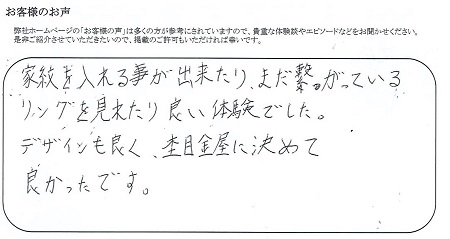 お客様のお声
弊社ホームページの「お客様の声」は多くの方が参考にされていますので、貴重な体験談やエピソードなどをお聞かせください。
是非ご紹介させていただきたいので、掲載のご許可もいただければ幸いです。
家紋を入れる事が出来たり、まだ繋がっている
リングを見れたり良い体験でした。
デザインも良く、杢目金屋に決めて
良かったです。